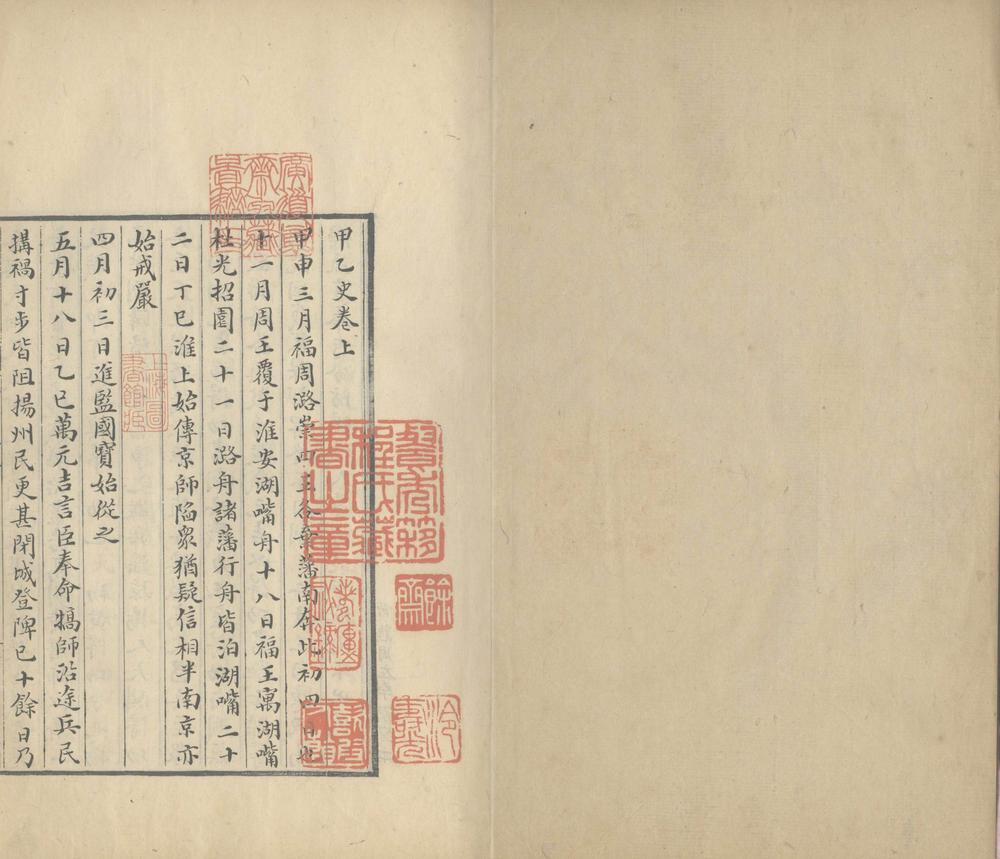 甲乙史卷上
甲申三月福周潞崇四王各棄藩南奔此初四日也
十一月周王覆于淮安湖嘴舟十八日福王寓湖嘴
杜光招園二十一日潞舟諸藩行舟皆泊湖嘴二十
二日丁巳淮上始傳京師陷眾猶疑信相半南京亦
始戒嚴
四月初三日進監國寶始從之
五月十八日乙巳萬元吉言臣奉命犒師沿途兵民
搆禍寸步皆阻揚州民更甚閉城登陴已十餘日乃
上海圖書館臣
餘齋